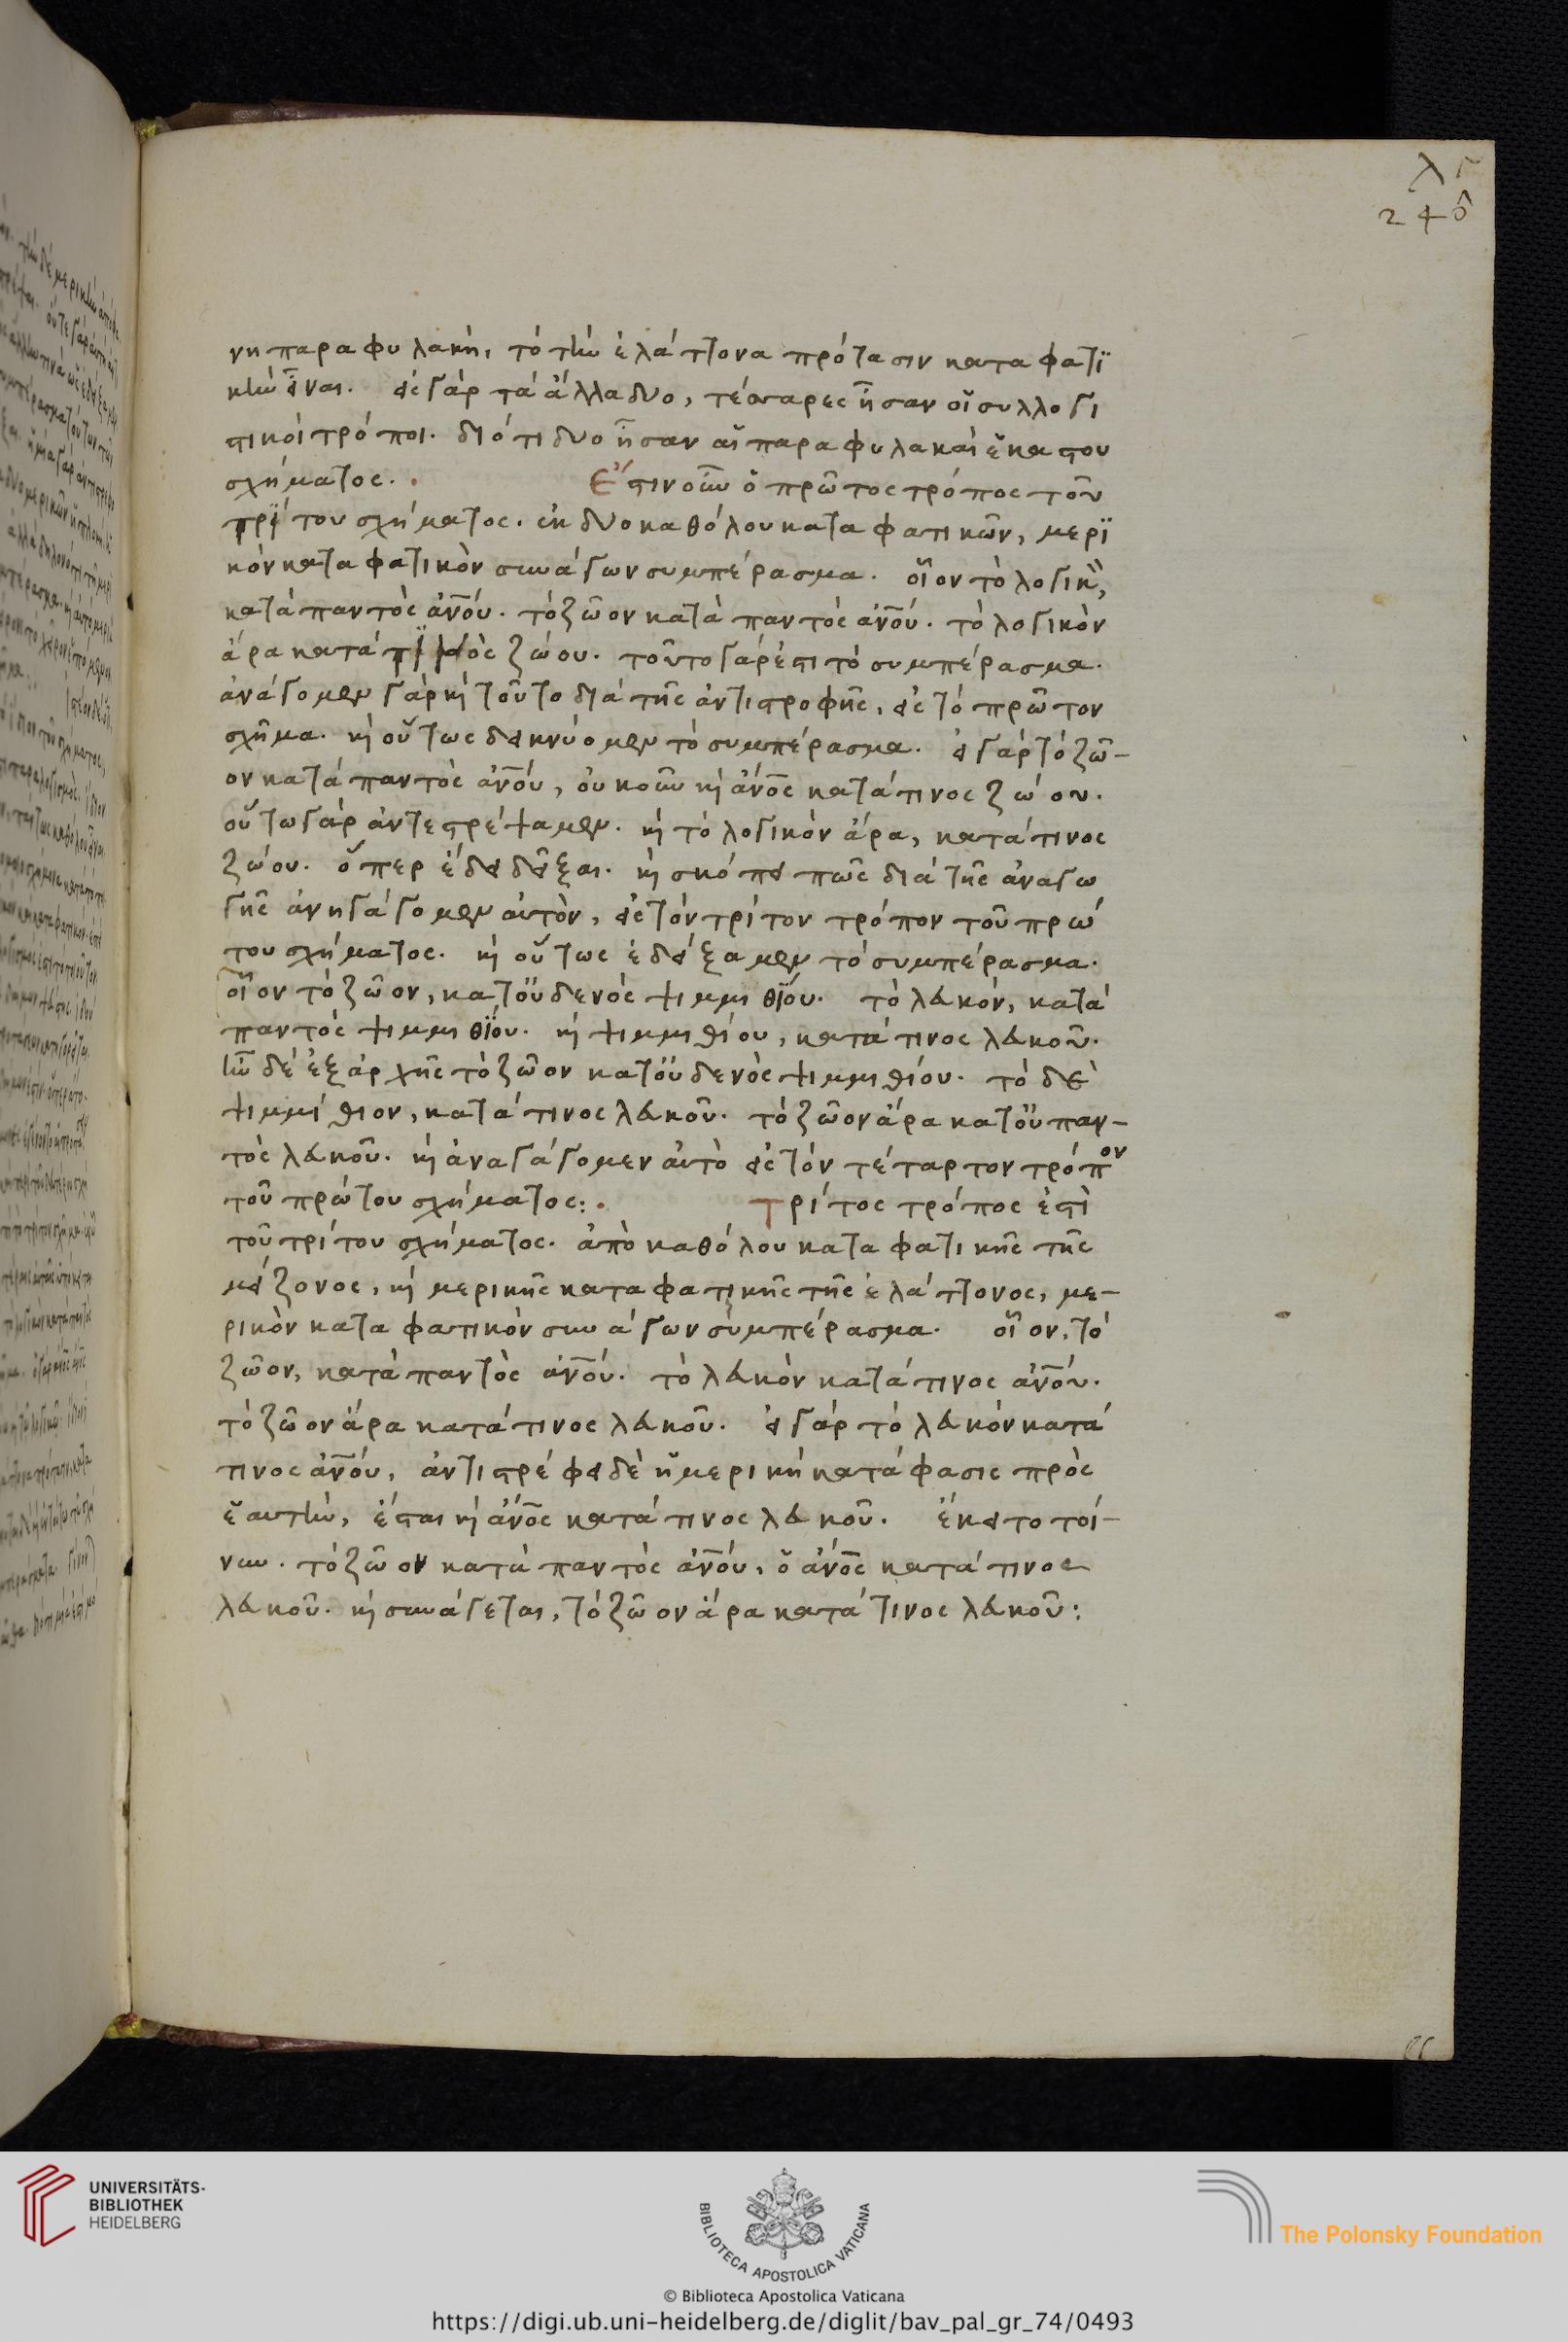 λγ
246
νη παραφυλακὴ, τὸ τὴν ἐλάττονα πρότασιν καταφατϊ
κὴν εἶναι. εἰς γὰρ τὰ ἄλλα δυο, τέσσαρες ἦσαν οἱ συλλογι
στικοὶ τρόποι. διότι δυο ἦσαν αἱ παραφυλακαὶ ἑκάστου
σχήματος.
Ἔστιν οὖν ὁ πρῶτος τρόπος τοῦ
τρίτου σχήματος. ἐκ δυο καθόλου καταφατικῶν, μερϊ
κὸν καταφατικὸν συνάγων συμπέρασμα. οἷον τὸ λογικὸν,
κατὰ παντὸς ἀν̅ου. τὸ ζῶον κατὰ παντὸς ἀν̅ου. τὸ λογικὸν
ἄρα κατὰ τϊνὸς ζώου. τοῦτο γάρ ἐστι τὸ συμπέρασμα.
ἀνάγομεν γὰρ κὴ τοῦτο διὰ τῆς ἀντιστροφῆς, εἰς τὸ πρῶτον
σχῆμα. κὴ οὕτως δεικνύομεν τὸ συμπέρασμα. εἰ γὰρ τὸ ζῶ-
ον κατὰ παντὸς ἀν̅ου, οὐκοῦν κὴ ἄν̅ος κατά τινος ζώου.
οὕτω γὰρ ἀντεστρέψαμεν. κὴ τὸ λογικὸν ἄρα, κατά τινος
ζώου. ὅπερ ἔδει δεῖξαι. κὴ σκόπει πῶς διὰ τῆς ἀναγω
γῆς ἀνηγάγομεν αὐτὸν, εἰς τὸν τρίτον τρόπον τοῦ πρώ
του σχήματος. κὴ οὕτως ἐδείξαμεν τὸ συμπέρασμα.
οἷον τὸ ζῶον, κατ' οὐδενὸς ψιμμιθϊου. τὸ λευκὸν, κατὰ
παντὸς ψιμμιθϊου. κὴ ψιμμιθίου, κατά τινος λευκοῦ.
ἦν δὲ ἐξ ἀρχῆς τὸ ζῶον κατ' οὐδενὸς ψιμμιθίου. τὸ δὲ
ψιμμίθιον, κατά τινος λευκοῦ. τὸ ζῶον ἄρα κατ' οὐ παν-
τὸς λευκοῦ. κὴ ἀναγάγομεν αὐτὸ εἰς τὸν τέταρτον τρόπον
τοῦ πρώτου σχήματος:.
Τρίτος τρόπος ἐστὶ
τοῦ τρίτου σχήματος. ἀπὸ καθόλου καταφατικῆς τῆς
μείζονος, κὴ μερικῆς καταφατικῆς τῆς ἐλάττονος, με-
ρικὸν καταφατικὸν συνάγων συμπέρασμα. οἷον, τὸ
ζῶον, κατὰ παντὸς ἀν̅ου. τὸ λευκὸν κατά τινος ἀν̅ου.
τὸ ζῶον ἄρα κατά τινος λευκοῦ. εἰ γὰρ τὸ λευκὸν κατά
τινος ἀν̅ου, ἀντιστρέφει δὲ ἡ μερικὴ κατάφασις πρὸς
ἑαυτὴν, ἔσται κὴ ἄν̅ος κατά τινος λευκοῦ. ἔκειτο τοί-
νυν. τὸ ζῶον κατὰ παντὸς ἀν̅ου, ὁ ἄν̅ος κατά τινος
λευκοῦ. κὴ συνάγεται, τὸ ζῶον ἄρα κατά τινος λευκοῦ:
UNIVERSITÄTS-
BIBLIOTHEK
HEIDELBERG
BIBLIOTECA APOSTOLICA VATICANA
The Polonsky Foundation
© Biblioteca Apostolica Vaticana
https://digi.ub.uni-heidelberg.de/diglit/bav_pal_gr_74/0493